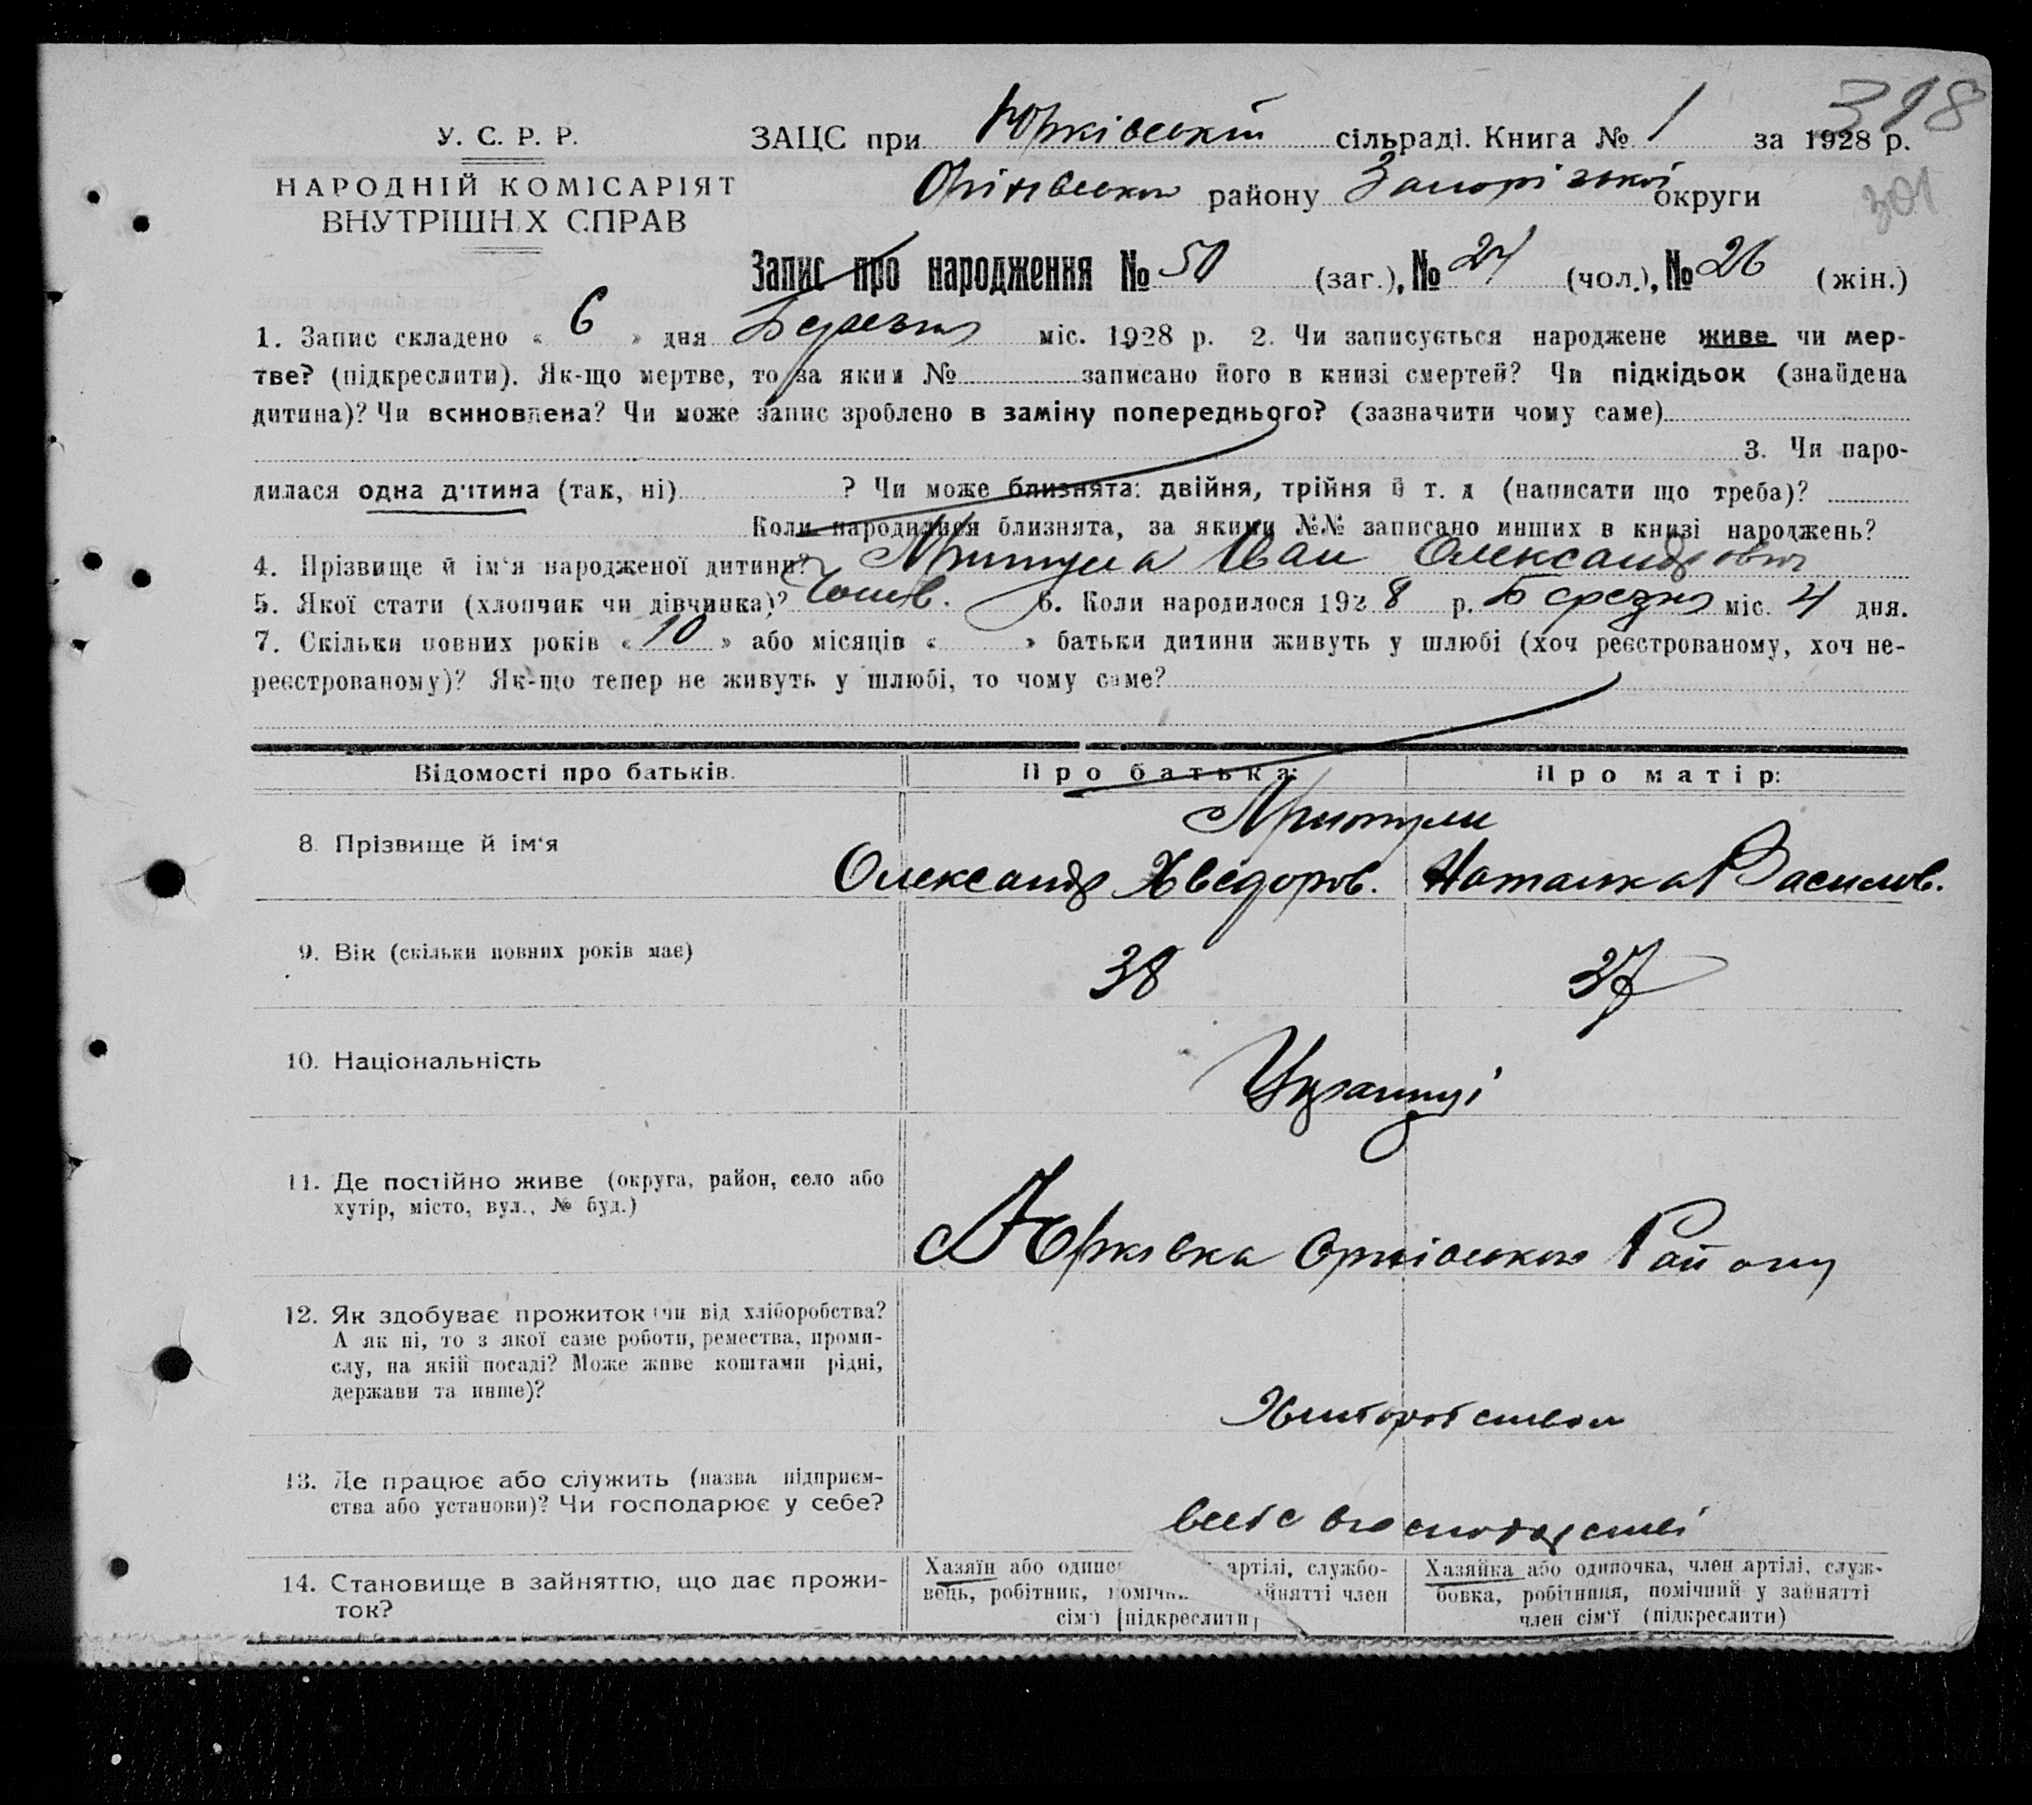 318
У. С. Р. Р.
ЗАЦС при Юрківській сільраді. Книга № 1 за 1928 р.
НАРОДНІЙ КОМІСАРІЯТ
Оріхівського району Запорізької округи
301
ВНУТРІШНІХ СПРАВ
Запис про народження № 50 (заг.), № 24 (чол.), № 26 (жін.)
1. Запис складено « 6 » дня Березня міс. 1928 р. 2. Чи записується народжене живе чи мер-
тве? (підкреслити). Як-що мертве, то за яким № записано його в книзі смертей? Чи підкідьок (знайдена
дитина)? Чи всиновлена? Чи може запис зроблено в заміну попереднього? (зазначити чому саме)
3. Чи наро-
дилася одна дитина (так, ні) ? Чи може близнята: двійня, трійня й т. д (написати що треба)?
Коли народилися близнята, за якими №№ записано инших в книзі народжень?
4. Прізвище й ім'я народженої дитини? Притула Іван Олександрович
5. Якої стати (хлопчик чи дівчинка)? 6. Коли народилося 1928 р. Березня міс. 4 дня.
7. Скільки повних років « 10 » або місяців « » батьки дитини живуть у шлюбі (хоч реєстрованому, хоч не-
реєстрованому)? Як-що тепер не живуть у шлюбі, то чому саме?
Відомості про батьків. Про батька: Про матір:
Притули
8. Прізвище й ім'я Олександр Хведоров. Наталка Василов.
9. Вік (скільки повних років має) 38 37
10. Національність Українці
11. Де постійно живе (округа, район, село або
хутір, місто, вул., № буд.)
Юрківка Оріхівського Району
12. Як здобуває прожиток (чи від хліборобства?
А як ні, то з якої саме роботи, ремества, проми-
слу, на якій посаді? Може живе коштами рідні,
держави та инше)?
Хліборобством
13. Де працює або служить (назва підприєм-
ства або установи)? Чи господарює у себе?
в господарстві
14. Становище в зайняттю, що дає прожи-
ток?
Хазяїн або одинес артілі, службо-
вець, робітник, помічн йнятті член
сім'ї (підкреслити)
Хазяйка або одиночка, член артілі, служ-
бовка, робітниця, помічний у зайнятті
член сім'ї (підкреслити)